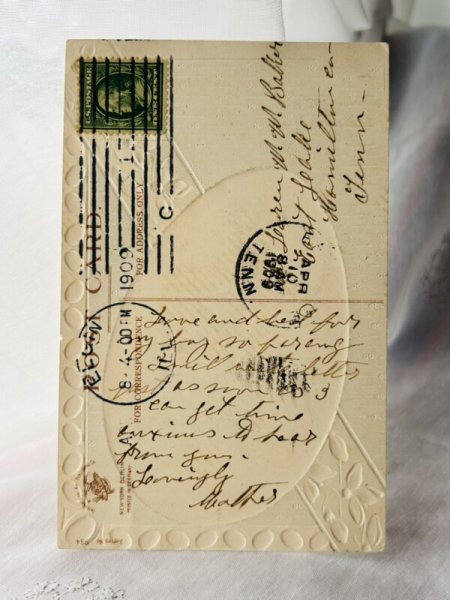 U.S. POSTAGE
ONE CENT
POST CARD.
FOR ADDRESS ONLY
FOR CORRESPONDENCE
8-4-00 PM
1909
C
APR
10
8 AM
1909
TENN
Loren M. M. Baker
Hamilton Co
Tenn-
Love and best for
my boy
I will write letter
just as soon as I
can get time
anxious to hear
from you-
Lovingly
Mother